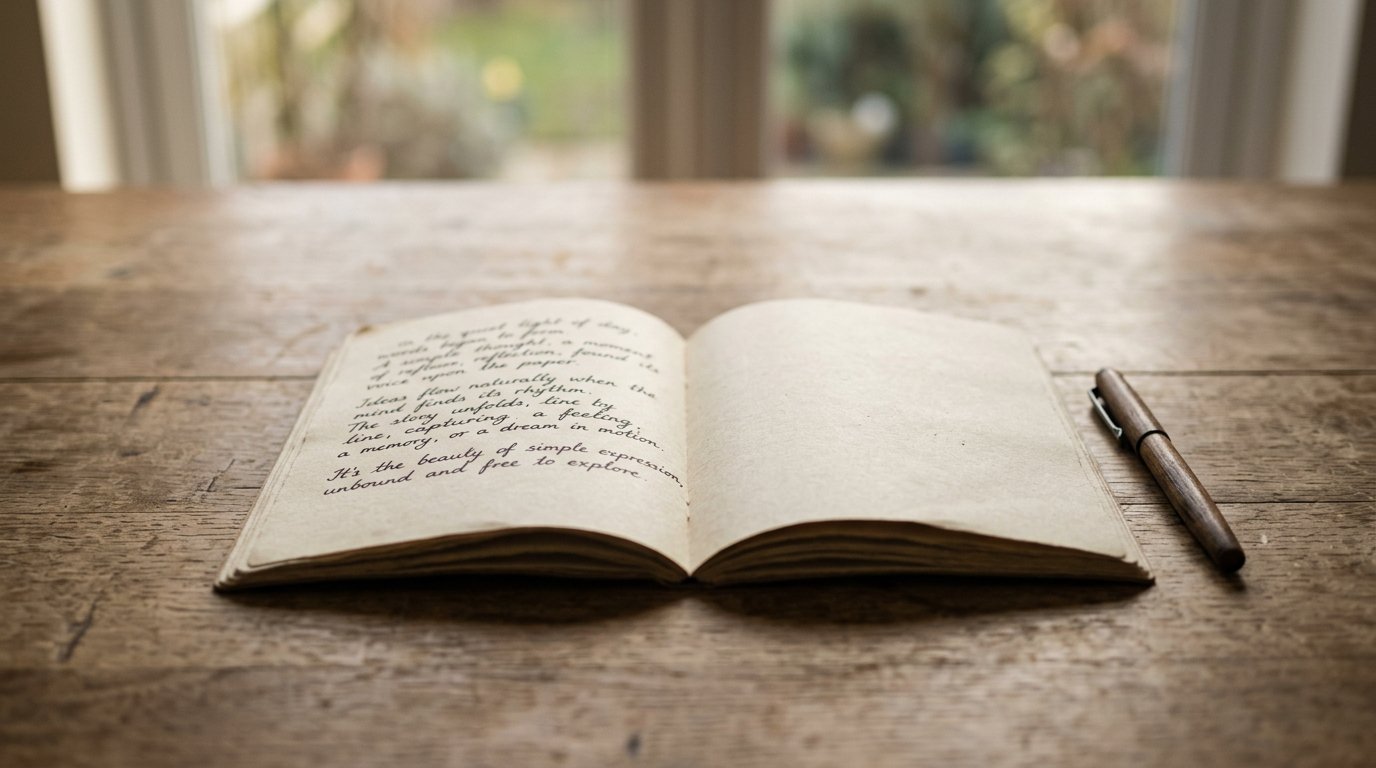 in the quiet light of day,
words began to form.
A simple thought, a moment
of reflection, found its
voice upon the paper.
Ideas flow naturally when the
mind finds its rhythm.
The story unfolds, line by
line, capturing a feeling,
a memory, or a dream in motion.
It's the beauty of simple expression,
unbound and free to explore